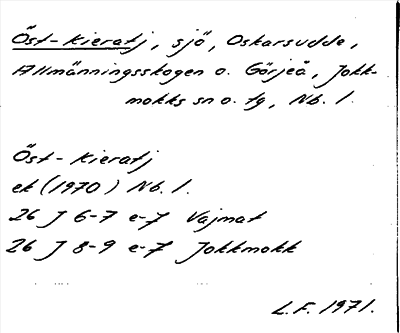 Öst-Kieratj, sjö, Oskarsudde,
Allmänningsskogen o. Görjeå, Jokk-
mokks sn o. tg, Nb. l.
Öst-Kieratj
ek (1970) Nb. l.
26 J 6-7 e-f Vajmat
26 J 8-9 e-f Jokkmokk
L.F. 1971.